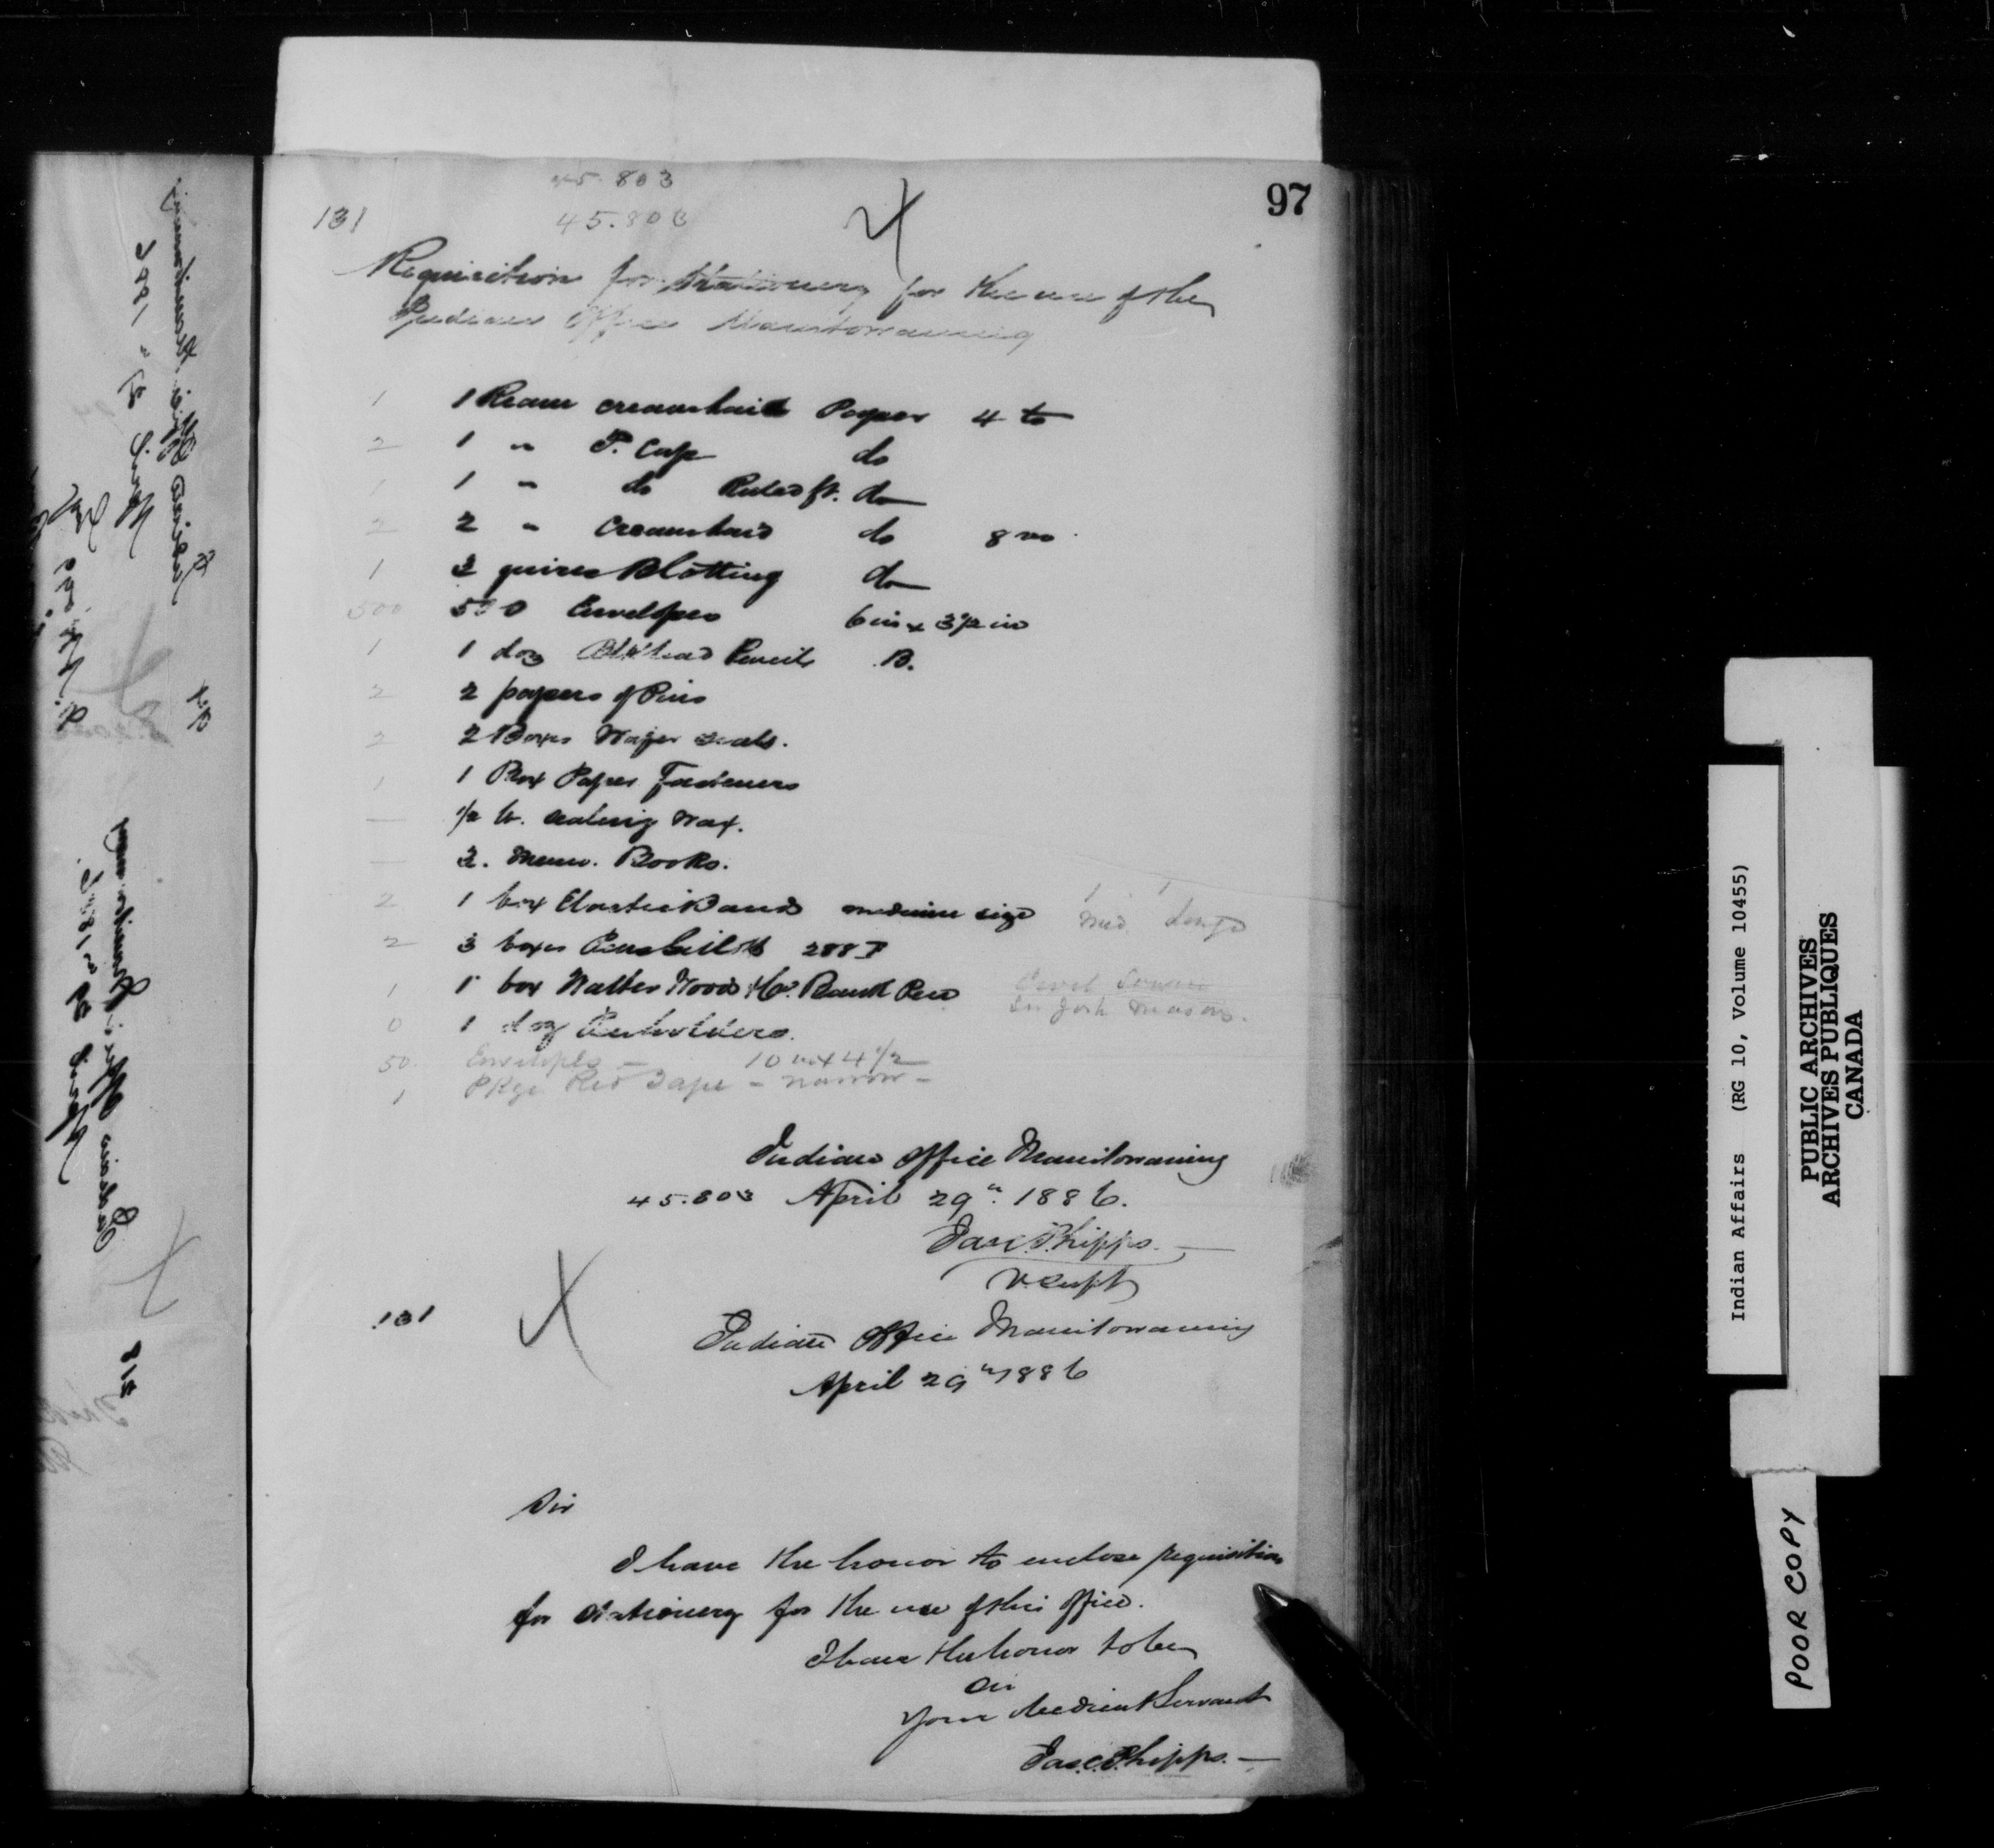 97
45.803
131 45.803
Requisition for Stationery for the use of the
Indian Office Manitowaning
1 1 Ream creamlaid Paper 4to
2 1 " F. Cap do
1 1 " do Ruled ft. do
2 2 " Creamlaid do 8vo
1 2 quires Blotting do
500 500 Envelopes 6 in x 3 1/2 in
1 1 doz Blk lead Pencils B.
2 2 papers of Pins
2 2 Boxes Wafer seals.
1 1 Box Paper Fasteners
— 1/2 lb. sealing Wax.
— 2. Memo. Books.
2 1 box Elastic Bands medium size 1 Med. 1 Large
2 3 boxes 288 F
1 1 box Walter Wood Bank Pen
0 1 doz Penholders.
50 Envelopes — 10 in x 4 1/2
1 Pkge Red Tape — narrow —
Indian Office Manitowaning
45.803 April 29th 1886.
Jas. C. Phipps. —
V. Supt
131 Indian Office Manitowaning
April 29th 1886
Sir
I have the honor to enclose requisition
for stationery for the use of this office.
I have the honor to be
Sir
Your obedient Servant
Jas. C. Phipps. —
Indian Affairs (RG 10, Volume 10455)
PUBLIC ARCHIVES
ARCHIVES PUBLIQUES
CANADA
POOR COPY